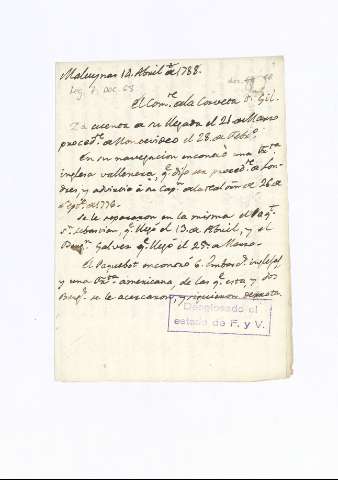 Maluynas 14. Abril de 1788.
Leg. 1. Doc. 63
El Com.te de la Corveta S.n Gil.
Da cuenta de su llegada el 21 de Marzo
proced.te de Montevideo el 28 de Feb.o
En su navegacion encontró una Frag.ta
inglesa vallenera, q.e dijo ser proced.te de Lon-
dres, y advirtió a su Cap.n de la real orn de 26 de
Sep.re de 1776.
Se le separaron en la misma el Paq.t
S.n Sebastian, q.e llegó el 13 de Abril, y el
Berg.n Galvez q.e llegó el 28 de Marzo.
El Paquebot encontró 6. Embarc.s inglesas,
y una Frag.ta americana, de las q.e esta, y dos
Berg.s se le acercaron, y siguieron su derrota.
Desglosado el
estado de F. y V.